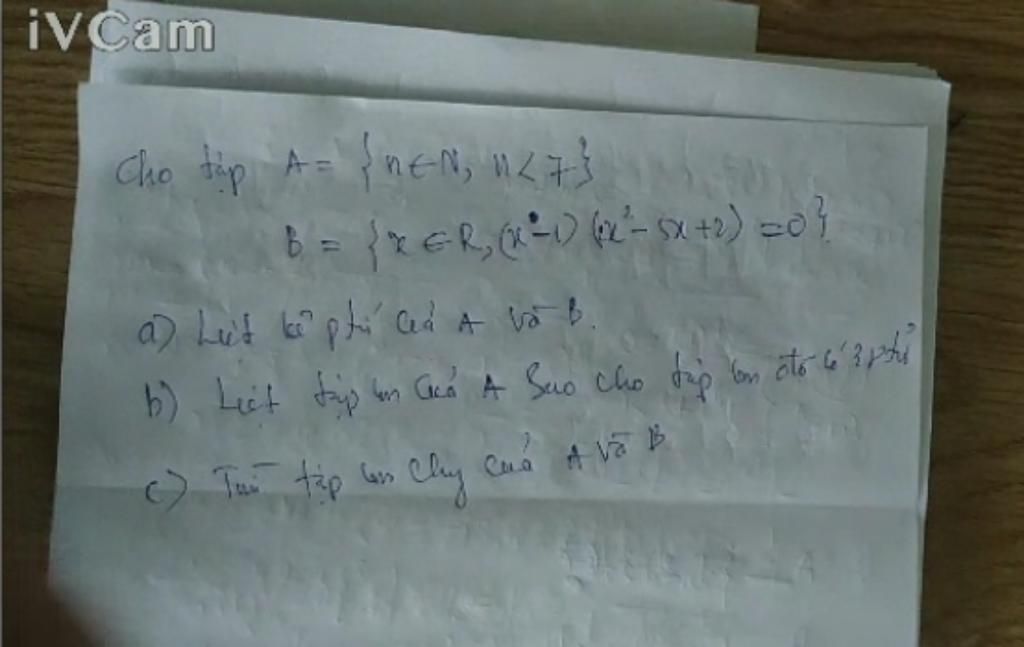 iVCam
Cho tập A = {n ∈ N, n < 7}
B = {x ∈ R, (x - 1) (2x² - 5x + 2) = 0}.
a) Liệt kê ptử của A và B.
b) Liệt tập con của A sao cho tập con đó có 3 ptử
c) Tìm tập con chg của A và B